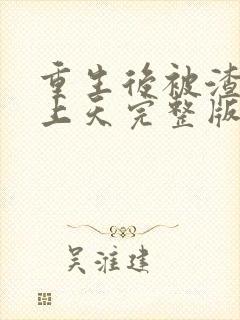 重生后被渣
上天完整版
吴淮建